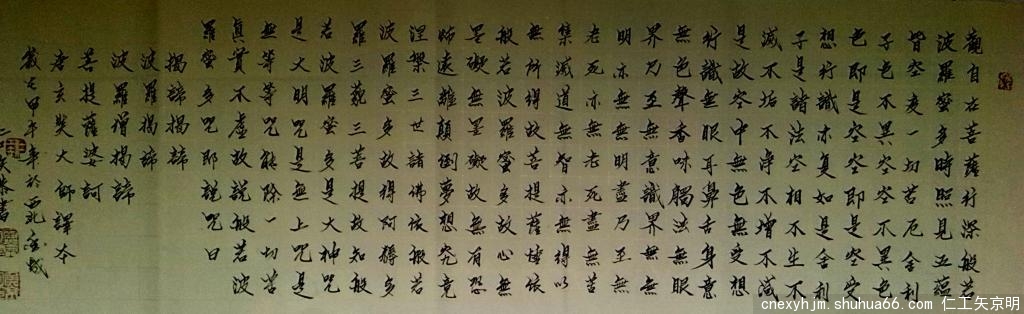 觀自在菩薩行深般若
波羅蜜多時照見五蘊
皆空度一切苦厄舍利
子色不異空空不異色
色即是空空即是色受
想行識亦复如是舍利
子是諸法空相不生不
滅不垢不净不增不减
是故空中無色無受想
行識無眼耳鼻舌身意
無色聲香味觸法無眼
界乃至無意識界無無
明亦無無明盡乃至無
老死亦無老死盡無苦
集滅道無智亦無得以
無所得故菩提薩埵依
般若波羅蜜多故心無
罣礙無罣礙故無有恐
怖遠離顛倒夢想究竟
涅槃三世諸佛依般若
波羅蜜多故得阿耨多
羅三藐三菩提故知般
若波羅蜜多是大神咒
是大明咒是無上咒是
無等等咒能除一切苦
真實不虛故說般若波
羅蜜多咒即說咒曰
揭諦揭諦
波羅揭諦
波羅僧揭諦
菩提薩婆訶
唐玄奘大師譯本
歲在甲午年於
書
cnexyhjm.shuhua66.com 仁工矢京明